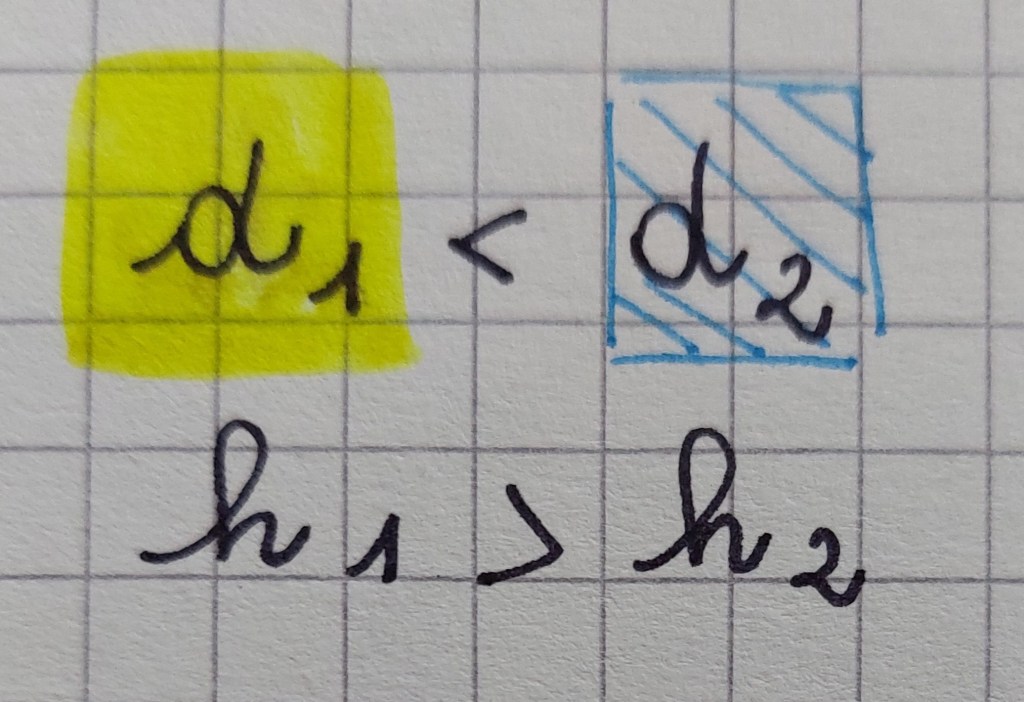 d₁ < d₂
h₁ > h₂